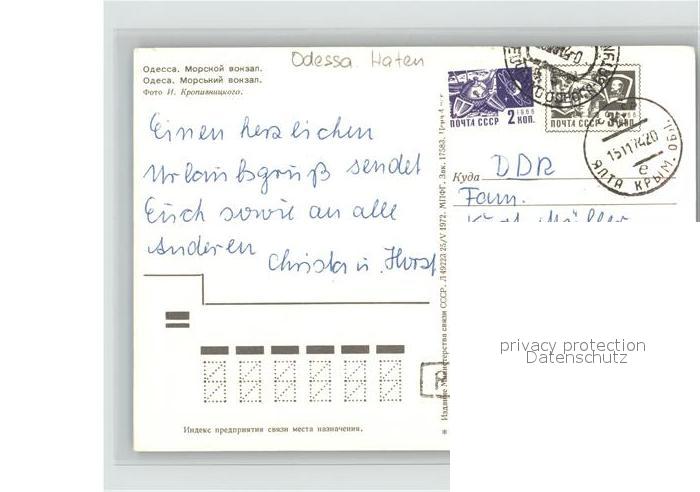 Одесса. Морской вокзал.
Одеса. Морський вокзал.
Фото И. Кропивницкого.
Odessa Haten
Einen herzlichen
Urlaubsgruß sendet
Euch sowie an alle
Anderen
Christa u. Horst
ПОЧТА СССР 2 КОП.
1966
ПОЧТА СССР
КОП.
15117420
е
ЯЛТА КРЫМ. ОБЛ.
Куда DDR
Fam.
Издание Министерства связи СССР. Л 49223 25/V 1972. МПФГ. Зак. 17583.
Индекс предприятия связи места назначения.
privacy protection
Datenschutz